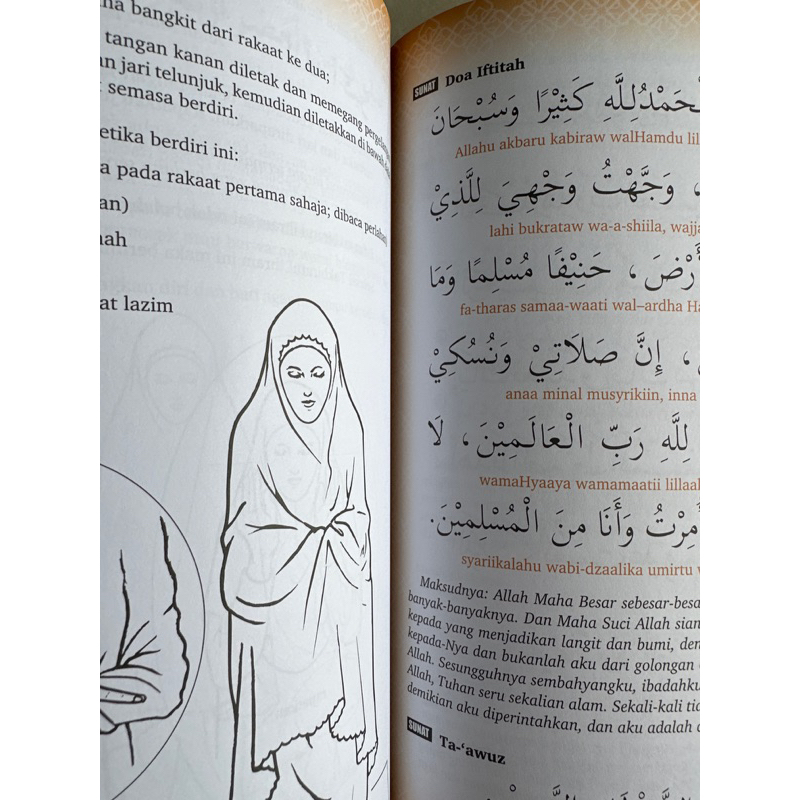 bangkit dari rakaat ke dua;
tangan kanan diletak dan memegang
jari telunjuk, kemudian diletakkan di bawah
semasa berdiri.
etika berdiri ini:
a pada rakaat pertama sahaja; dibaca perlahan
an)
ah
at lazim
SUNAT Doa Iftitah
لْحَمْدُلِلَّهِ كَثِيْرًا وَسُبْحَانَ
Allahu akbaru kabiraw walHamdu lil
، وَجَّهْتُ وَجْهِيَ لِلَّذِيْ
lahi bukrataw wa-a-shiila, wajja
أَرْضَ، حَنِيْفًا مُسْلِمًا وَمَا
fa-tharas samaa-waati wal–ardha Ha
، إِنَّ صَلَاتِيْ وَنُسُكِيْ
anaa minal musyrikiin, inna
لِلَّهِ رَبِّ الْعَالَمِيْنَ، لَا
wamaHyaaya wamamaatii lillaa
أُمِرْتُ وَأَنَا مِنَ الْمُسْلِمِيْنَ.
syariikalahu wabi-dzaalika umirtu
Maksudnya: Allah Maha Besar sebesar-besa
banyak-banyaknya. Dan Maha Suci Allah sian
kepada yang menjadikan langit dan bumi, den
kepada-Nya dan bukanlah aku dari golongan
Allah. Sesungguhnya sembahyangku, ibadahku
Allah, Tuhan seru sekalian alam. Sekali-kali tia
demikian aku diperintahkan, dan aku adalah
SUNAT Ta-‘awuz